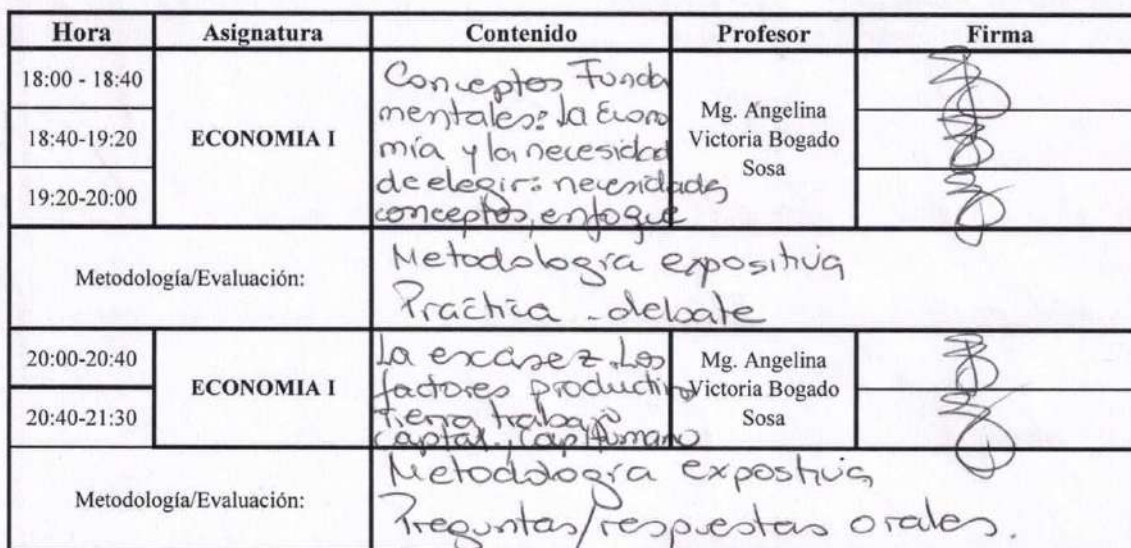 Hora Asignatura Contenido Profesor Firma
18:00 - 18:40
18:40-19:20
19:20-20:00
ECONOMIA I
Conceptos Funda
mentales: La Econo
mía y la necesidad
de elegir: necesidades
conceptos, enfoque
Mg. Angelina
Victoria Bogado
Sosa
Metodología/Evaluación:
Metodología expositiva
Práctica - debate
20:00-20:40
20:40-21:30
ECONOMIA I
La escasez. Los
factores productivos
Tierra trabajo
capital, Cap Humano
Mg. Angelina
Victoria Bogado
Sosa
Metodología/Evaluación:
Metodología expostiva
Preguntas/respuestas orales.